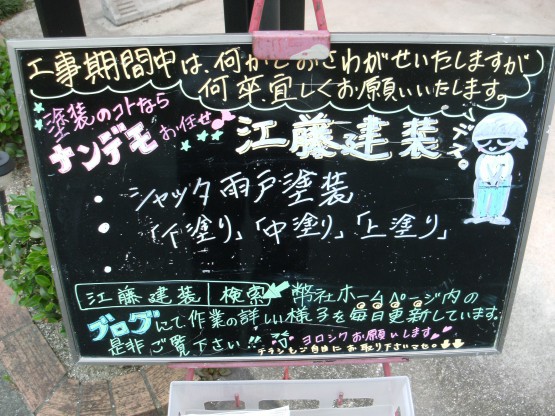 工事期間中は、何かとおさわがせいたしますが
何卒、宜しくお願いいたします。
塗装のコトなら
ナンデモお任せ
江藤建装
シャッタ雨戸塗装
「下塗り」「中塗り」「上塗り」
江藤建装 検索
弊社ホームページ内の
ブログにて、作業の詳しい様子を毎日更新しています。
是非ご覧下さい!! ヨロシクお願いします。
チラシもご自由にお取り下さいマセ。